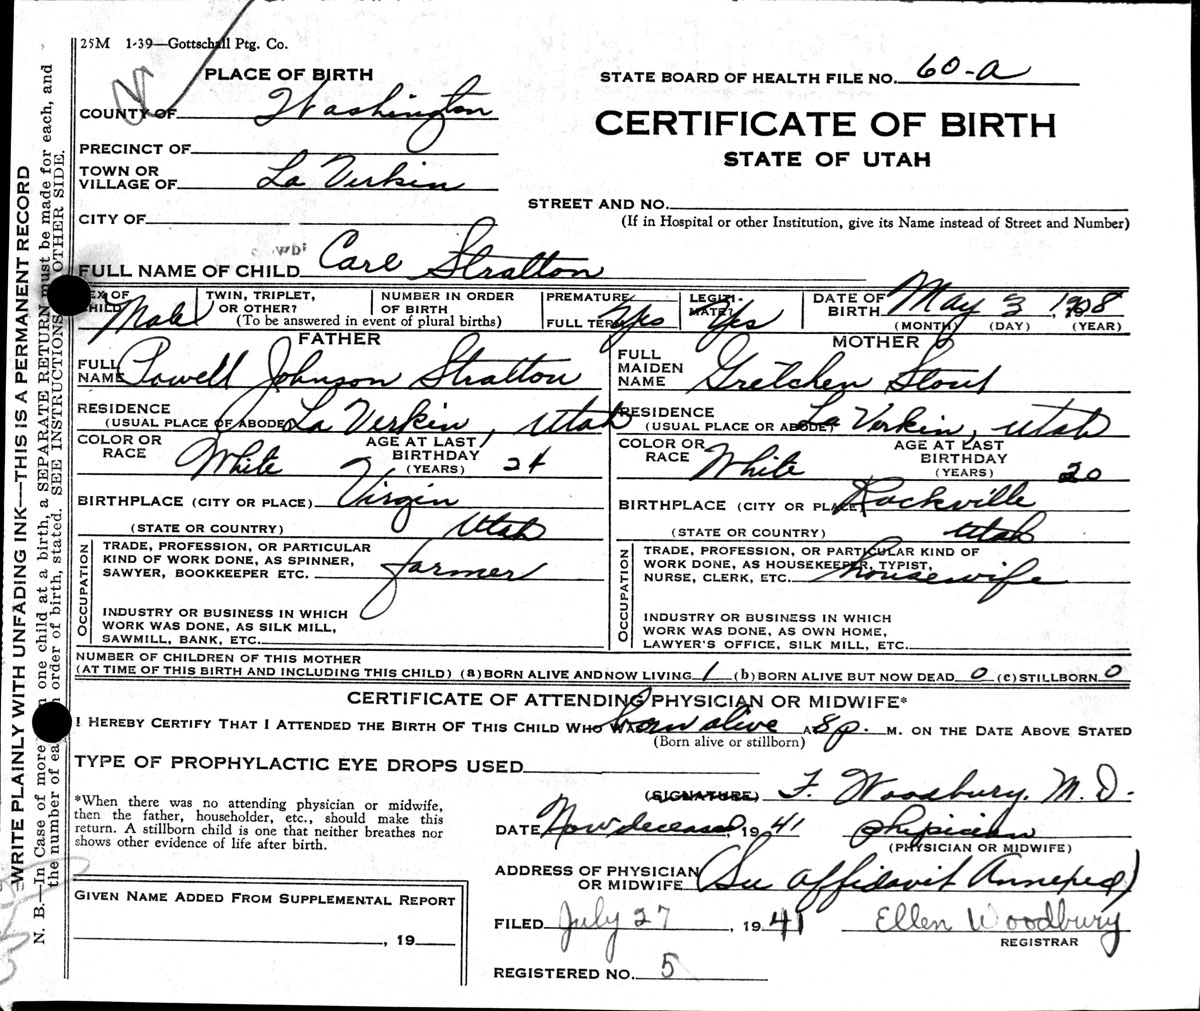 25M 1-39—Gottschall Ptg. Co.
PLACE OF BIRTH
COUNTY OF Washington
PRECINCT OF
TOWN OR
VILLAGE OF La Verkin
CITY OF
STATE BOARD OF HEALTH FILE NO. 60-a
CERTIFICATE OF BIRTH
STATE OF UTAH
STREET AND NO.
(If in Hospital or other Institution, give its Name instead of Street and Number)
FULL NAME OF CHILD Carl Stratton
SEX OF
CHILD Male
TWIN, TRIPLET,
OR OTHER?
NUMBER IN ORDER
OF BIRTH
(To be answered in event of plural births)
PREMATURE
FULL TERM Yes
LEGITI-
MATE? Yes
DATE OF
BIRTH May 3 1908
(MONTH) (DAY) (YEAR)
FATHER
FULL
NAME Powell Johnson Stratton
RESIDENCE
(USUAL PLACE OF ABODE) La Verkin, Utah
COLOR OR
RACE White
AGE AT LAST
BIRTHDAY
(YEARS) 24
BIRTHPLACE (CITY OR PLACE) Virgin
(STATE OR COUNTRY) Utah
OCCUPATION
TRADE, PROFESSION, OR PARTICULAR
KIND OF WORK DONE, AS SPINNER,
SAWYER, BOOKKEEPER ETC. farmer
INDUSTRY OR BUSINESS IN WHICH
WORK WAS DONE, AS SILK MILL,
SAWMILL, BANK, ETC.
MOTHER
FULL
MAIDEN
NAME Gretchen Stout
RESIDENCE
(USUAL PLACE OR ABODE) La Verkin, Utah
COLOR OR
RACE White
AGE AT LAST
BIRTHDAY
(YEARS) 20
BIRTHPLACE (CITY OR PLACE) Rockville
(STATE OR COUNTRY) Utah
OCCUPATION
TRADE, PROFESSION, OR PARTICULAR KIND OF
WORK DONE, AS HOUSEKEEPER, TYPIST,
NURSE, CLERK, ETC. housewife
INDUSTRY OR BUSINESS IN WHICH
WORK WAS DONE, AS OWN HOME,
LAWYER'S OFFICE, SILK MILL, ETC.
NUMBER OF CHILDREN OF THIS MOTHER
(AT TIME OF THIS BIRTH AND INCLUDING THIS CHILD) (a) BORN ALIVE AND NOW LIVING 1 (b) BORN ALIVE BUT NOW DEAD 0 (c) STILLBORN 0
CERTIFICATE OF ATTENDING PHYSICIAN OR MIDWIFE*
I HEREBY CERTIFY THAT I ATTENDED THE BIRTH OF THIS CHILD WHO WAS born alive AT 8 p. M. ON THE DATE ABOVE STATED
(Born alive or stillborn)
TYPE OF PROPHYLACTIC EYE DROPS USED
*When there was no attending physician or midwife,
then the father, householder, etc., should make this
return. A stillborn child is one that neither breathes nor
shows other evidence of life after birth.
(SIGNATURE) F. Woodbury, M.D.
DATE Now deceased, 1941 physician
(PHYSICIAN OR MIDWIFE)
ADDRESS OF PHYSICIAN
OR MIDWIFE (See affidavit Annexed)
FILED July 27, 1941 Ellen Woodbury
REGISTRAR
REGISTERED NO. 5
GIVEN NAME ADDED FROM SUPPLEMENTAL REPORT
, 19
WRITE PLAINLY WITH UNFADING INK—THIS IS A PERMANENT RECORD
N. B.—In Case of more one child at a birth, a SEPARATE RETURN must be made for each, and
the number of ea order of birth, stated. SEE INSTRUCTIONS OTHER SIDE.